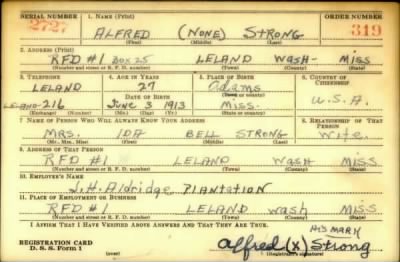 SERIAL NUMBER 1. NAME (Print) ORDER NUMBER
2727 ALFRED (NONE) STRONG 319
(First) (Middle) (Last)
2. ADDRESS (Print)
RFD #1 BOX 25 LELAND WASH- MISS
(Number and street or R. F. D. number) (Town) (County) (State)
3. TELEPHONE 4. AGE IN YEARS 5. PLACE OF BIRTH 6. COUNTRY OF CITIZENSHIP
LELAND 27 Adams
DATE OF BIRTH (Town or county)
LELAND-216 JUNE 3 1913 MISS. U.S.A.
(Exchange) (Number) (Mo.) (Day) (Yr.) (State or country)
7. NAME OF PERSON WHO WILL ALWAYS KNOW YOUR ADDRESS 8. RELATIONSHIP OF THAT PERSON
MRS. IDA BELL STRONG Wife.
(Mr., Mrs., Miss) (First) (Middle) (Last)
9. ADDRESS OF THAT PERSON
RFD #1 LELAND WASH MISS.
(Number and street or R. F. D. number) (Town) (County) (State)
10. EMPLOYER'S NAME
J.H. Aldridge PLANTATION
11. PLACE OF EMPLOYMENT OR BUSINESS
RFD #1 LELAND wash MISS
(Number and street or R. F. D. number) (Town) (County) (State)
I AFFIRM THAT I HAVE VERIFIED ABOVE ANSWERS AND THAT THEY ARE TRUE.
HIS MARK
REGISTRATION CARD Alfred (X) Strong
D. S. S. Form 1 (over) (Registrant's signature)